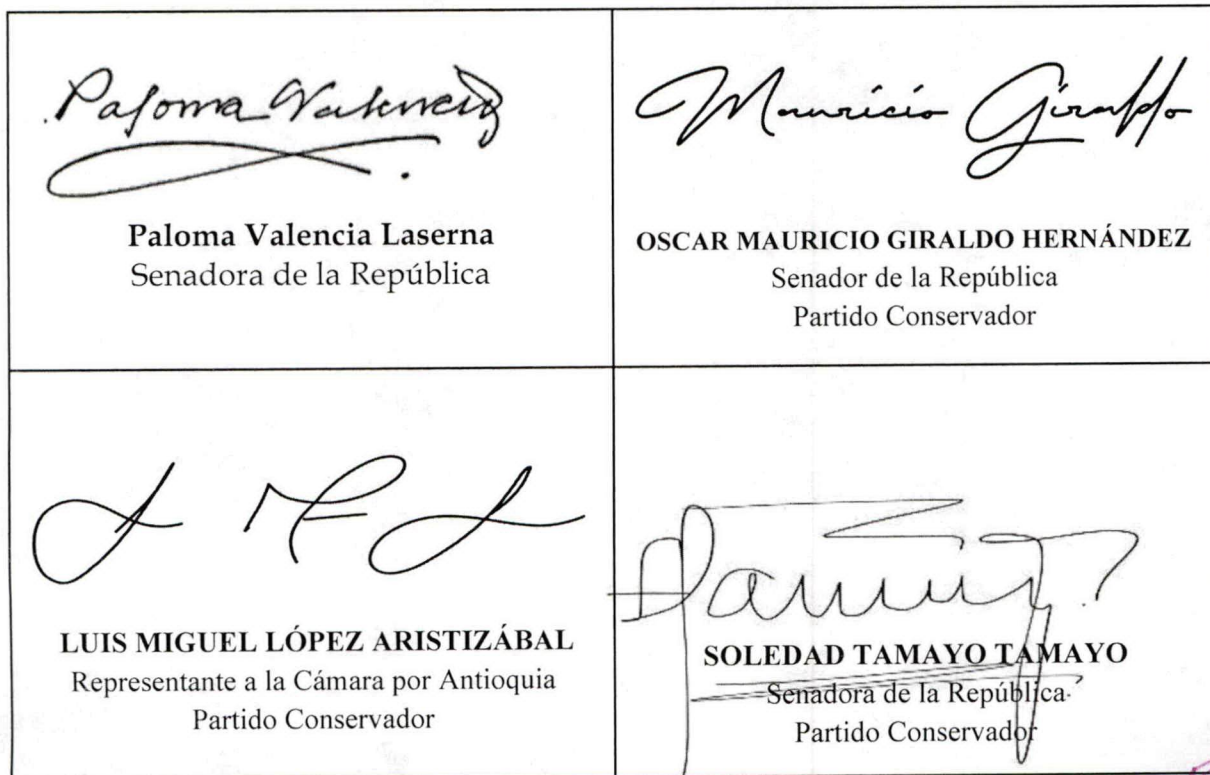 Paloma Valencia
Paloma Valencia Laserna
Senadora de la República
Mauricio Giraldo
OSCAR MAURICIO GIRALDO HERNÁNDEZ
Senador de la República
Partido Conservador
LUIS MIGUEL LÓPEZ ARISTIZÁBAL
Representante a la Cámara por Antioquia
Partido Conservador
SOLEDAD TAMAYO TAMAYO
Senadora de la República
Partido Conservador